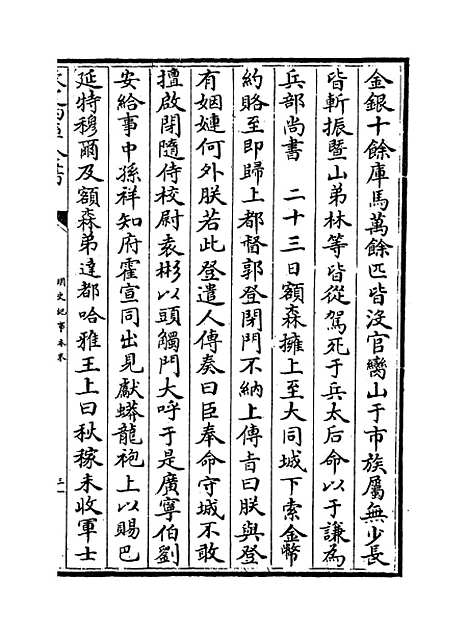 金銀十餘庫馬萬餘匹皆沒官臠山于市族屬無少長
皆斬振暨山弟林等皆從駕死于兵太后命以于謙為
兵部尚書　二十三日額森擁上至大同城下索金幣
約賂至即歸上都督郭登閉門不納上傳旨曰朕與登
有姻婕何外朕若此登遣人傳奏曰臣奉命守城不敢
擅啟閉隨侍校尉袁彬以頭觸門大呼于是廣寧伯劉
安給事中孫祥知府霍宣同出見獻蟒龍袍上以賜巴
延特穆爾及額森弟達都哈雅王上曰秋稼未收軍士
明史紀事本末